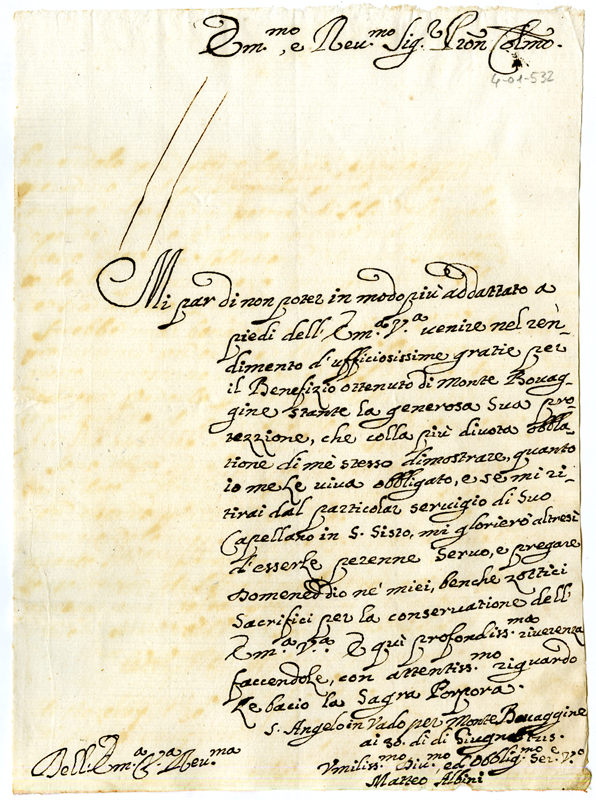 Em.mo, e Reu.mo Sig.r Pron Colmo.
4-01-532
Mi par di non poter in modo più addattato a
piedi dell'Em.a V.a uenire nel ren-
dimento d'ufficiosissime gratie per
il Benefizio ottenuto di Monte Bouag-
gine stante la generosa Sua pro
tezzione, che colla più diuota obbla
tione di mè stesso dimostrare, quanto
io me Le viua obbligato, e se mi ri
tirai dal particolar seruigio di Suo
Capellano in S. Sisto, mi glorierò altresì
d'esserle perenne Seruo, e pregare
Domeneddio ne' miei, benche zottici
Sacrifici per la conseruatione dell'
Em.a V.a E quì profondiss.ma riuerenza
faccendole, con attentiss.mo riguardo
Le bacio la Sagra Porpora.
S. Angelo in Vado per Monte Bouaggine
ai 30. di di Giugno
Dell'Em.a V.a Reu.ma
Vmiliss.mo Diu.mo ed Obblig.mo Ser.e V.o
Matteo Albini